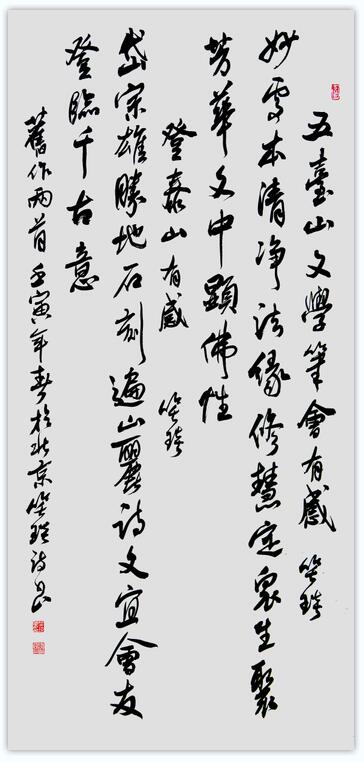 五臺山文學筆會有感
妙本清净法緣修慧定衆生聚
芳華文中顯佛性
登泰山有感
岱宗雄勝地石刻遍山麗詩文宜會友
登臨千古意
舊作兩首壬寅年春於北京詩